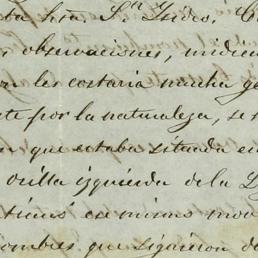 hta Sn Ysidro.
observaciones, midien
les costaria mucha ge
te por la naturaleza, se
que estaba situada en
orilla izquierda de la
en mismo mov
ombres que siguieron de